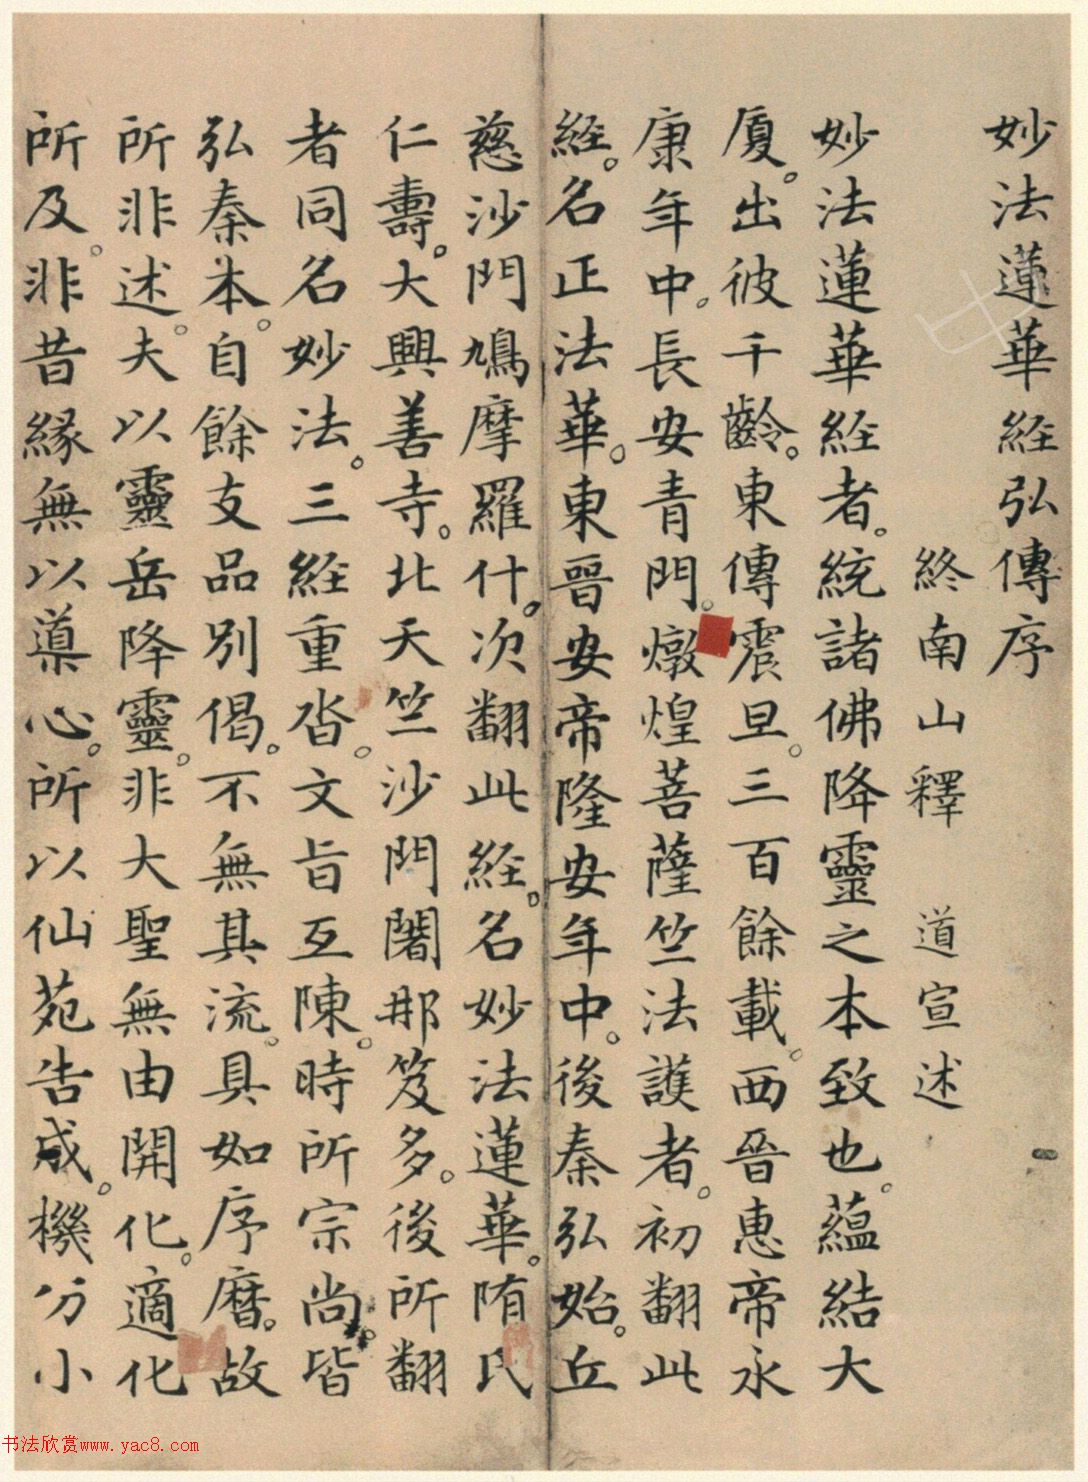 妙法蓮華経弘傳序
終南山釋 道宣述
妙法蓮華経者。統諸佛降靈之本致也。蘊結大
厦。出彼千齡。東傳震旦。三百餘載。西晉惠帝永
康年中。長安青門。燉煌菩薩竺法護者。初翻此
経。名正法華。東晉安帝隆安年中。後秦弘始。丘
慈沙門鳩摩羅什。次翻此経。名妙法蓮華。隋氏
仁壽。大興善寺。北天竺沙門闍那笈多。後所翻
者同名妙法。三経重沓。文旨互陳。時所宗尚。皆
弘秦本。自餘支品別偈。不無其流。具如序曆。故
所非述。夫以靈岳降靈。非大聖無由開化。適化
所及。非昔緣無以導心。所以仙苑告成。機分小
书法欣赏www.yac8.com